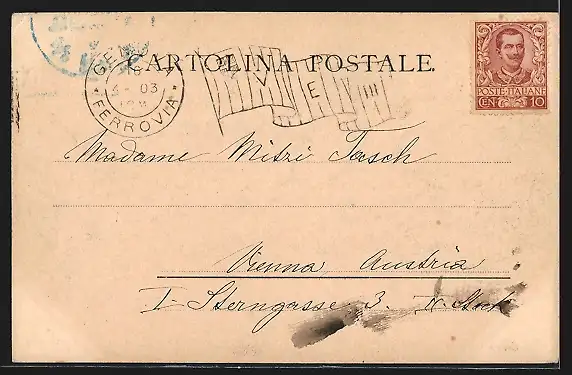 CARTOLINA POSTALE.
FERROVIA
03
V E III
POSTE·ITALIANE
CEN 10
Madame Mitzi Tasch
Vienna Austria
I- Sterngasse 3. Stock